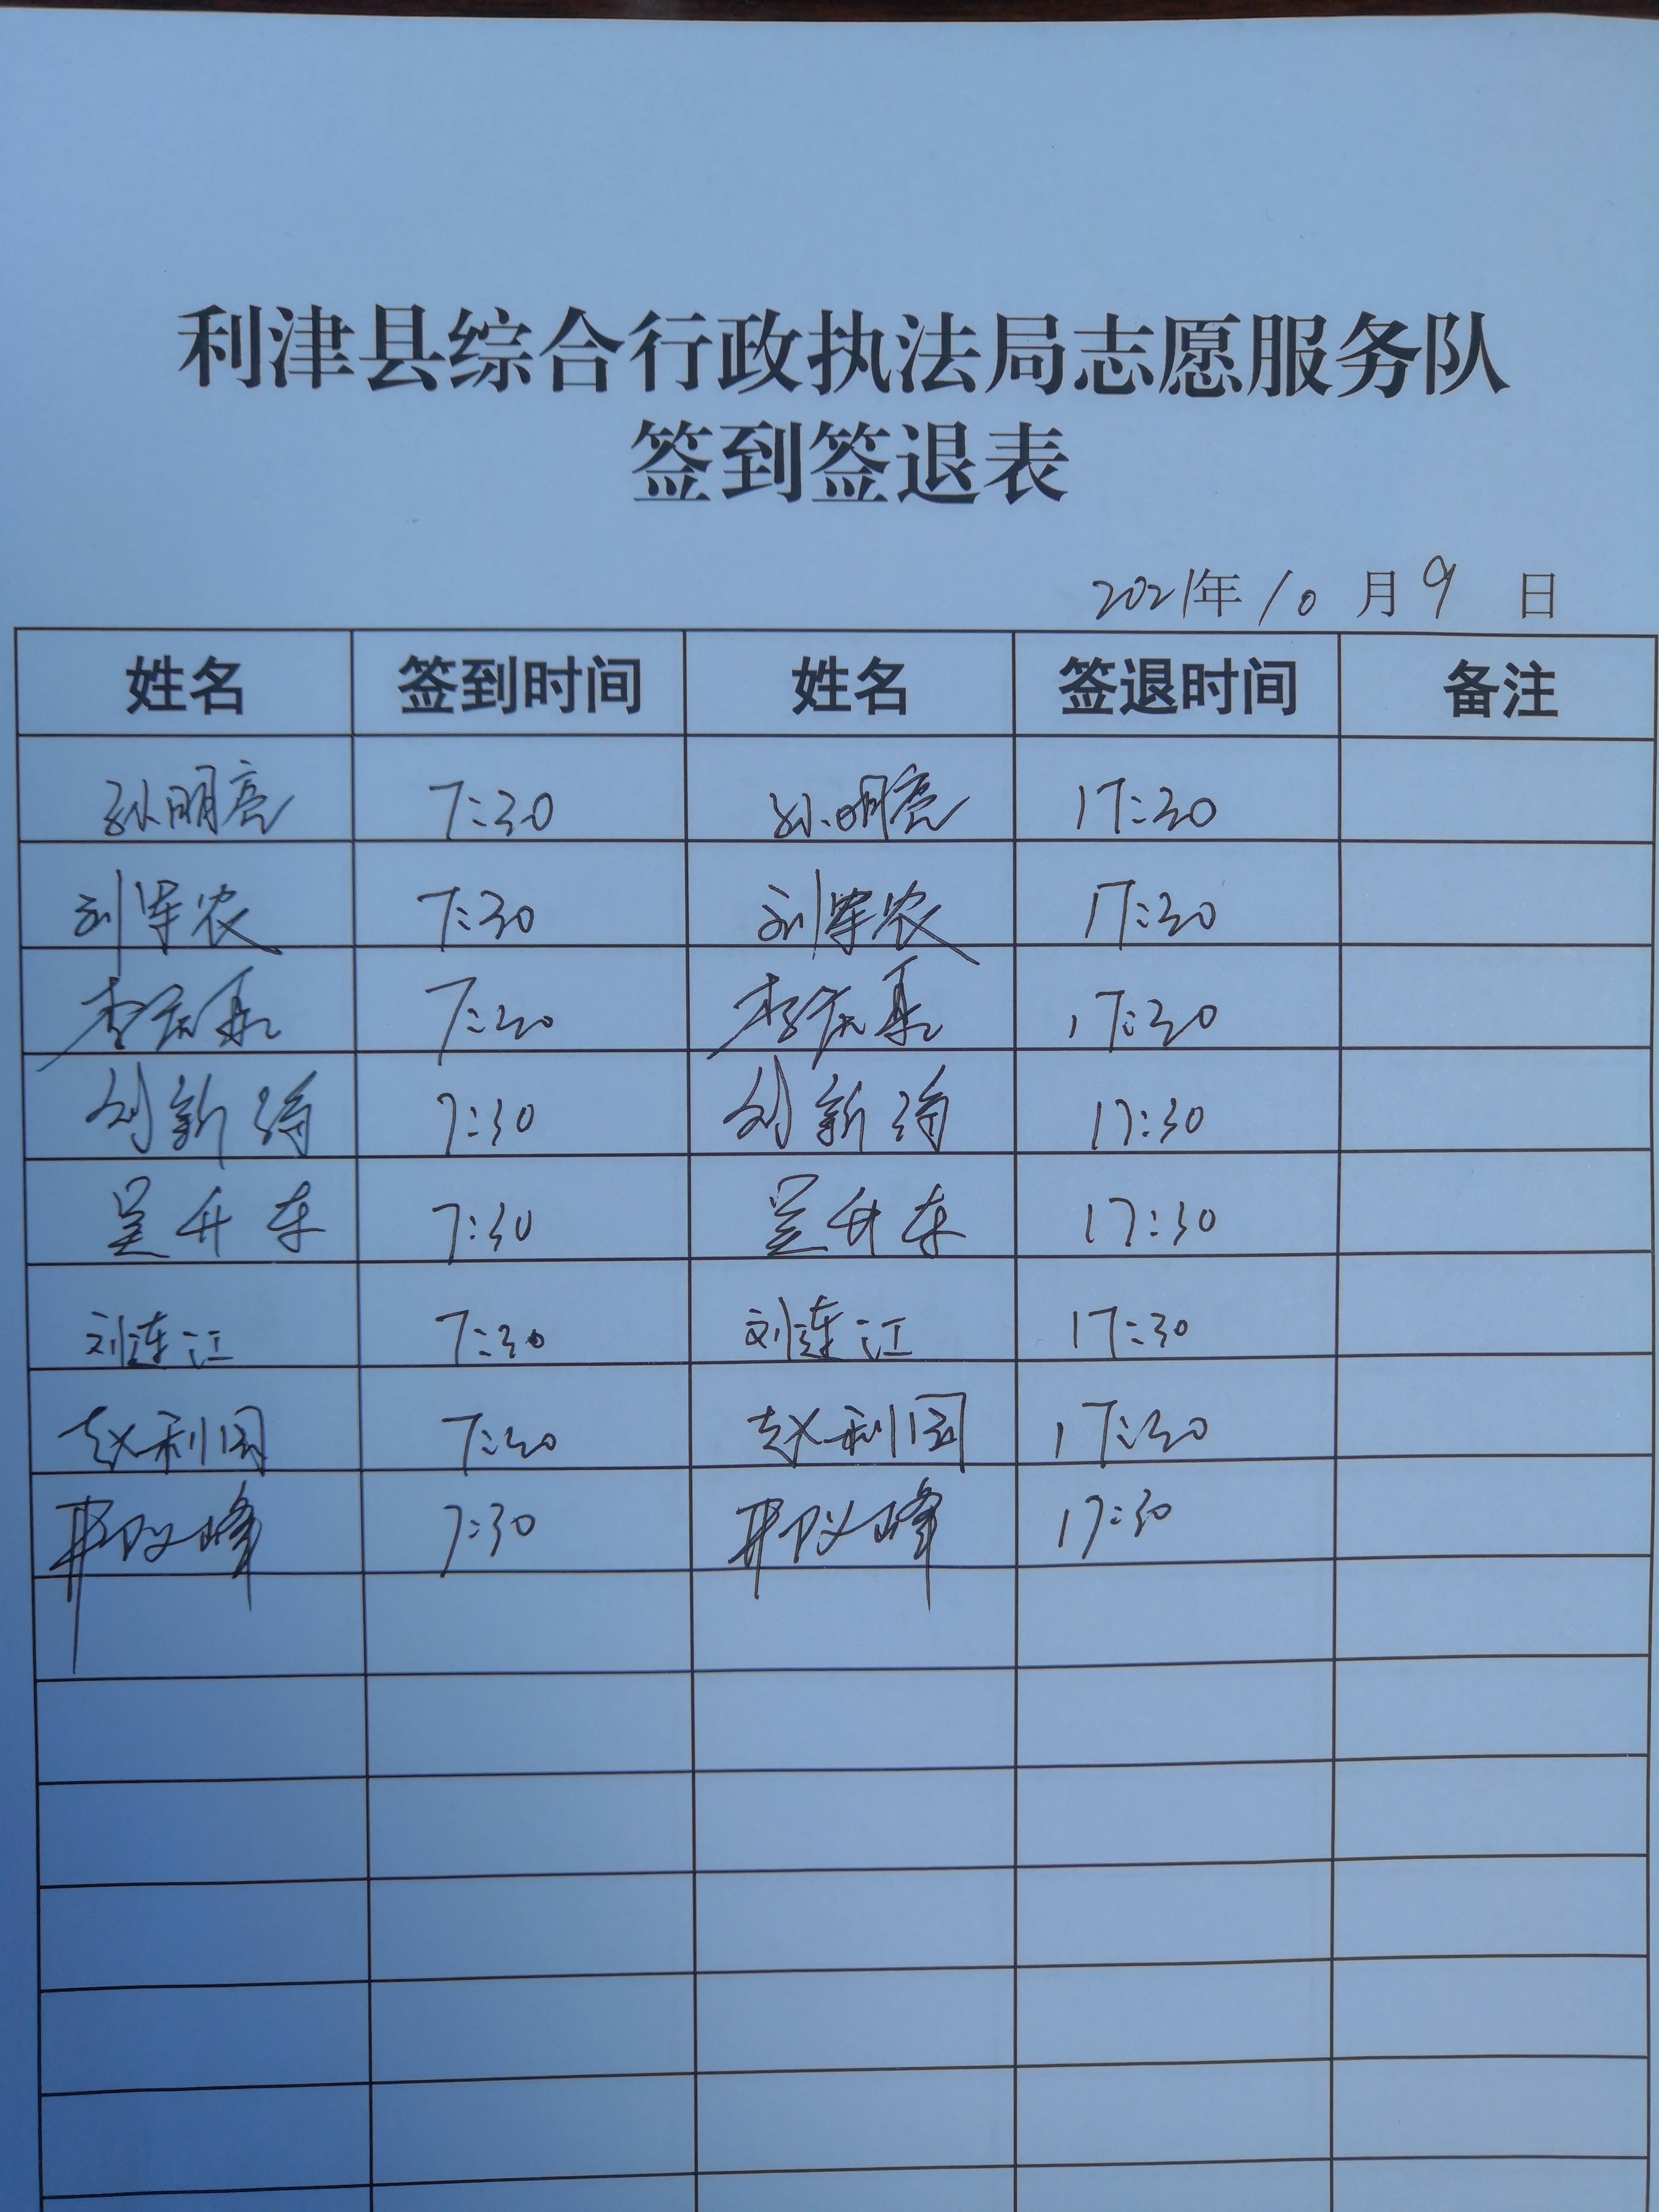 利津县综合行政执法局志愿服务队
签到签退表
2021年10月9日
姓名 签到时间 姓名 签退时间 备注
孙明亮 7:30 孙明亮 17:30
刘军农 7:30 刘军农 17:30
李 7:30 李 17:30
刘新 7:30 刘新 17:30
吴升东 7:30 吴升东 17:30
刘连江 7:30 刘连江 17:30
赵利国 7:30 赵利国 17:30
峰 7:30 峰 17:30